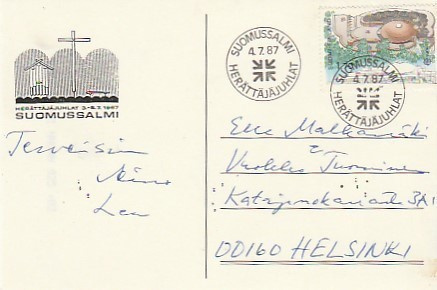 HERÄTTÄJÄJUHLAT 3.-5.7.1987
SUOMUSSALMI
Terveisin
Aino
Lea
SUOMUSSALMI
4.7.87
HERÄTTÄJÄJUHLAT
SUOMUSSALMI
4.7.87
HERÄTTÄJÄJUHLAT
Elle
Tuominen
Katajanokanranta
00160 HELSINKI